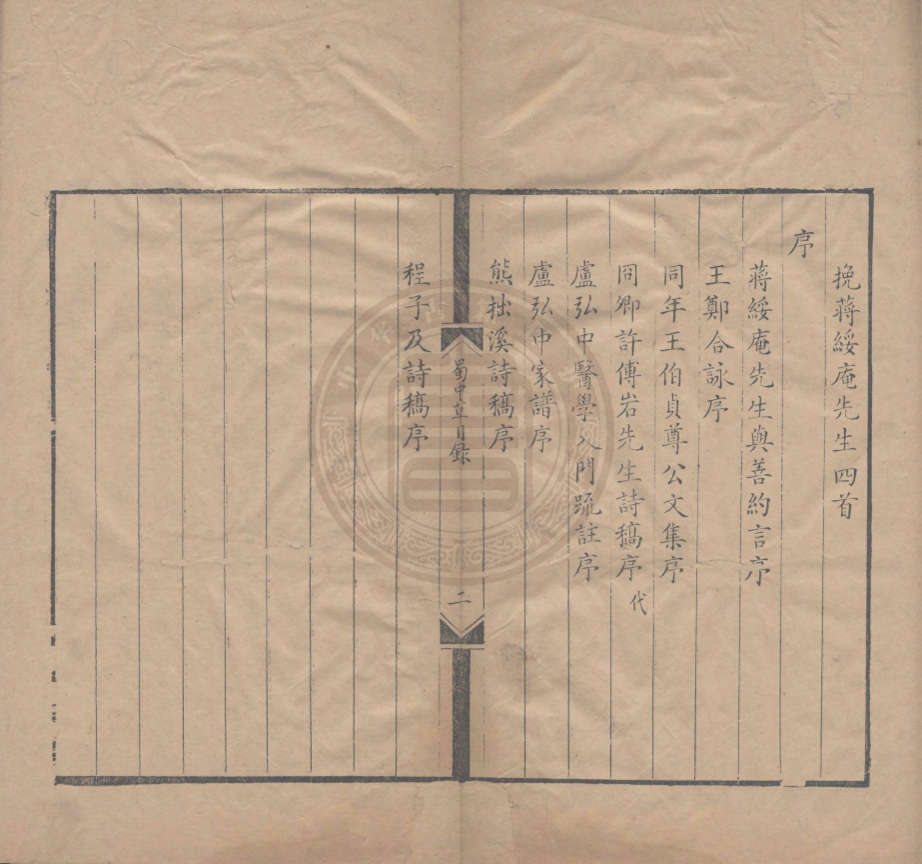 挽蔣綏庵先生四首
序
蔣綏庵先生與善約言序
王鄭合詠序
同年王伯貞尊公文集序
同卿許傅岩先生詩稿序代
盧弘中醫學入門疏註序
盧弘中家譜序
熊拙溪詩稿序
蜀中草目錄
二
程子及詩稿序